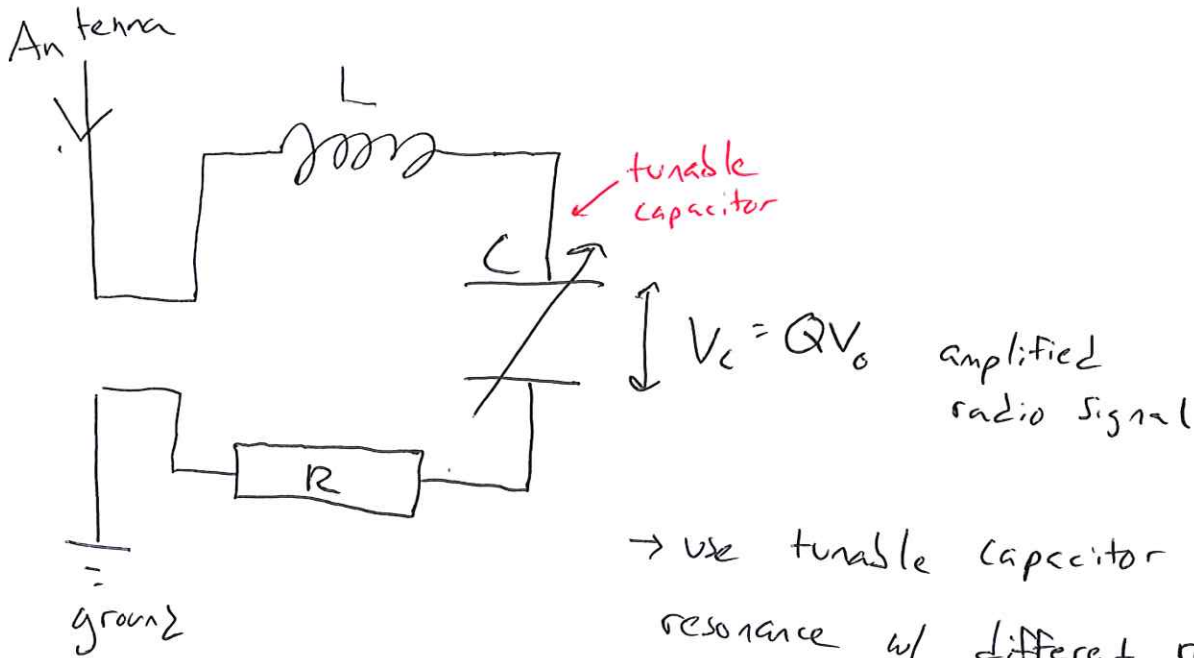 Antenna
L
tunable
capacitor
C
Vc = QV₀ amplified
radio signal
R
→ use tunable capacitor
resonance w/ different
ground